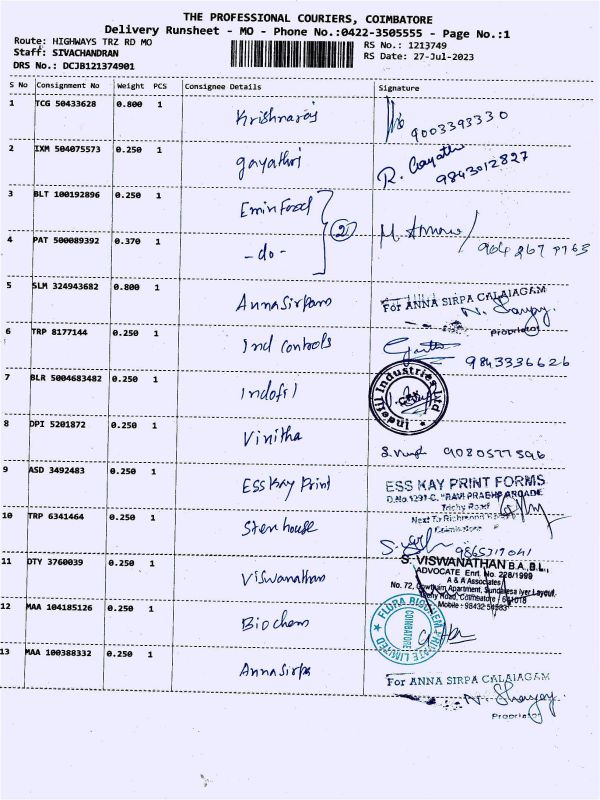 THE PROFESSIONAL COURIERS, COIMBATORE
Delivery Runsheet - MO - Phone No.:0422-3505555 - Page No.:1
Route: HIGHWAYS TRZ RD MO
RS No.: 1213749
Staff: SIVACHANDRAN
RS Date: 27-Jul-2023
DRS No.: DCJB121374901
S No Consignment No Weight PCS Consignee Details Signature
1 TCG 50433628 0.800 1 Krishnaraj 9003393330
2 IXM 504075573 0.250 1 gayathri R. Gayathri 9843012827
3 BLT 100192896 0.250 1 Emin Food
2
4 PAT 500089392 0.370 1 -do-
5 SLM 324943682 0.800 1 AnnaSirpam For ANNA SIRPA CALAIAGAM
Proprietor
6 TRP 8177144 0.250 1 Ind Controls 9843336626
7 BLR 5004683482 0.250 1 Indofil
8 DPI 5201872 0.250 1 Vinitha 9080577596
9 ASD 3492483 0.250 1 Ess Kay Print ESS KAY PRINT FORMS
D.No.1291-C, "RAVI PRABHA ARCADE
Trichy Road
10 TRP 6341464 0.250 1 Stenhouse 9865717041
11 DTY 3760039 0.250 1 Viswanathan S. VISWANATHAN B.A.,B.L.,
ADVOCATE Enrl. No. 226/1999
A & A Associates
No. 72, Gowtham Apartment, Sundaresa Iyer Layout,
Trichy Road, Coimbatore - 641018
Mobile : 98432 54983
12 MAA 104185126 0.250 1 Biochem FLORA BIOCHEM PRIVATE LIMITED
COIMBATORE
13 MAA 100388332 0.250 1 AnnaSirpa For ANNA SIRPA CALAIAGAM
Proprietor